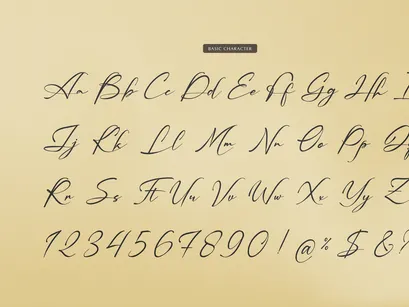 BASIC CHARACTER
Aa Bb Cc Dd Ee Ff Gg Hh I
Jj Kk Ll Mm Nn Oo Pp
Rr Ss Tt Uu Vv Ww Xx Yy Z
1234567890!@%$&?